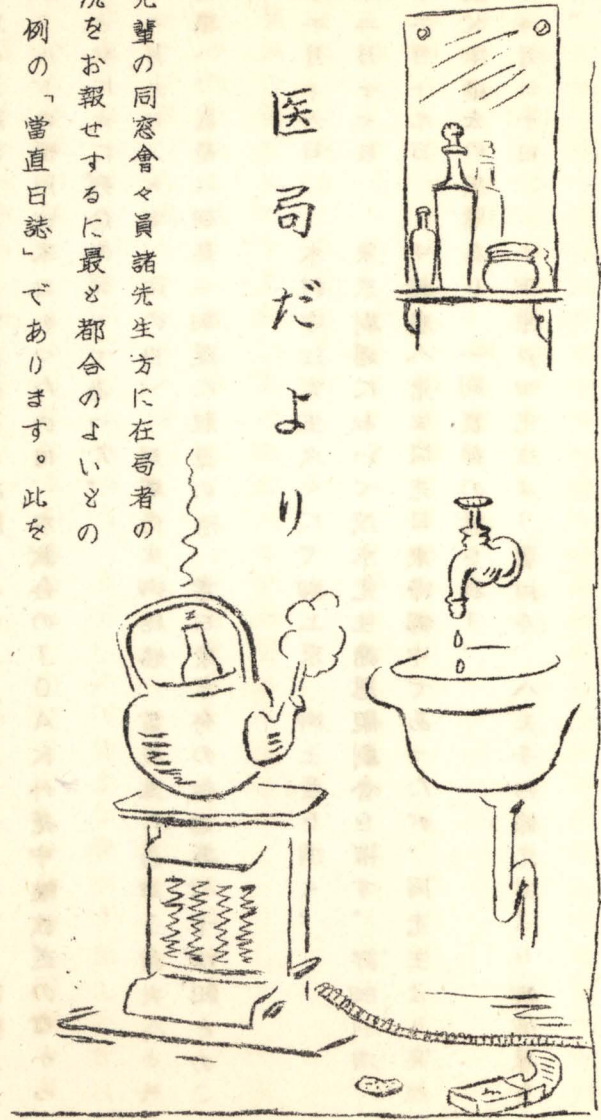 医局だより
先輩の同窓會々員諸先生方に在局者の
況をお報せするに最も都合のよいもの
例の「當直日誌」であります 此を